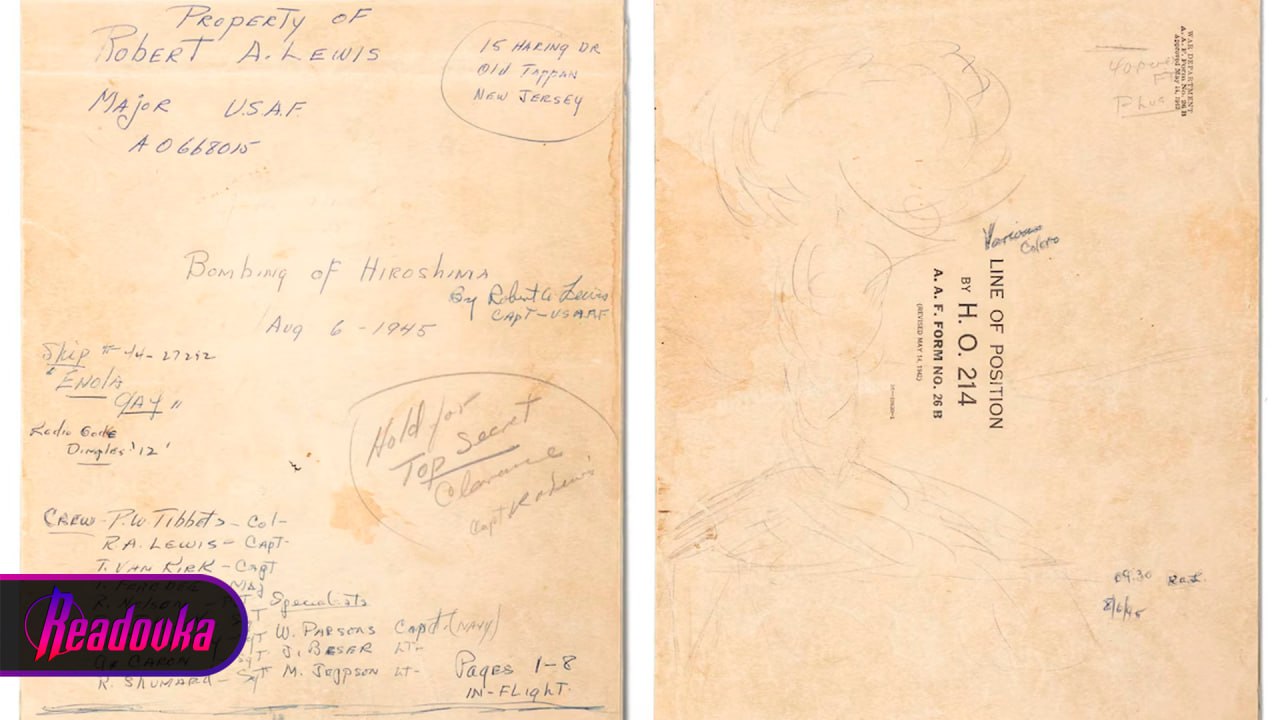 PROPERTY OF
ROBERT A. LEWIS
15 HARING DR
Old TAPPAN
NEW JERSEY
MAJOR U.S.A.F.
AO668015
BOMBING OF HIROSHIMA
By Robert A. Lewis
CAPT-USAAF
Aug 6 -1945
Ship # 44-27292
"ENOLA
GAY"
Dimples '12'
Hold for
Top Secret
Clearance
Capt R A Lewis
CREW - P.W. TIBBETS - Col-
R.A. LEWIS - CAPT-
T. VAN KIRK - CAPT
Specialists
W. PARSONS Capt. (NAVY)
J. BESER LT-
CARON
M. JEPPSON LT-
R. SHUMARD -
PAGES 1-8
IN-FLIGHT.
Readovka
WAR DEPARTMENT
A. A. F. Form No. 26 B
Approved May 14, 1942
40,000
FT
Plus
Various
Colors
LINE OF POSITION
BY
H. O. 214
A. A. F. FORM NO. 26 B
(REVISED MAY 14, 1942)
09:30 R.a.L.
8/6/45